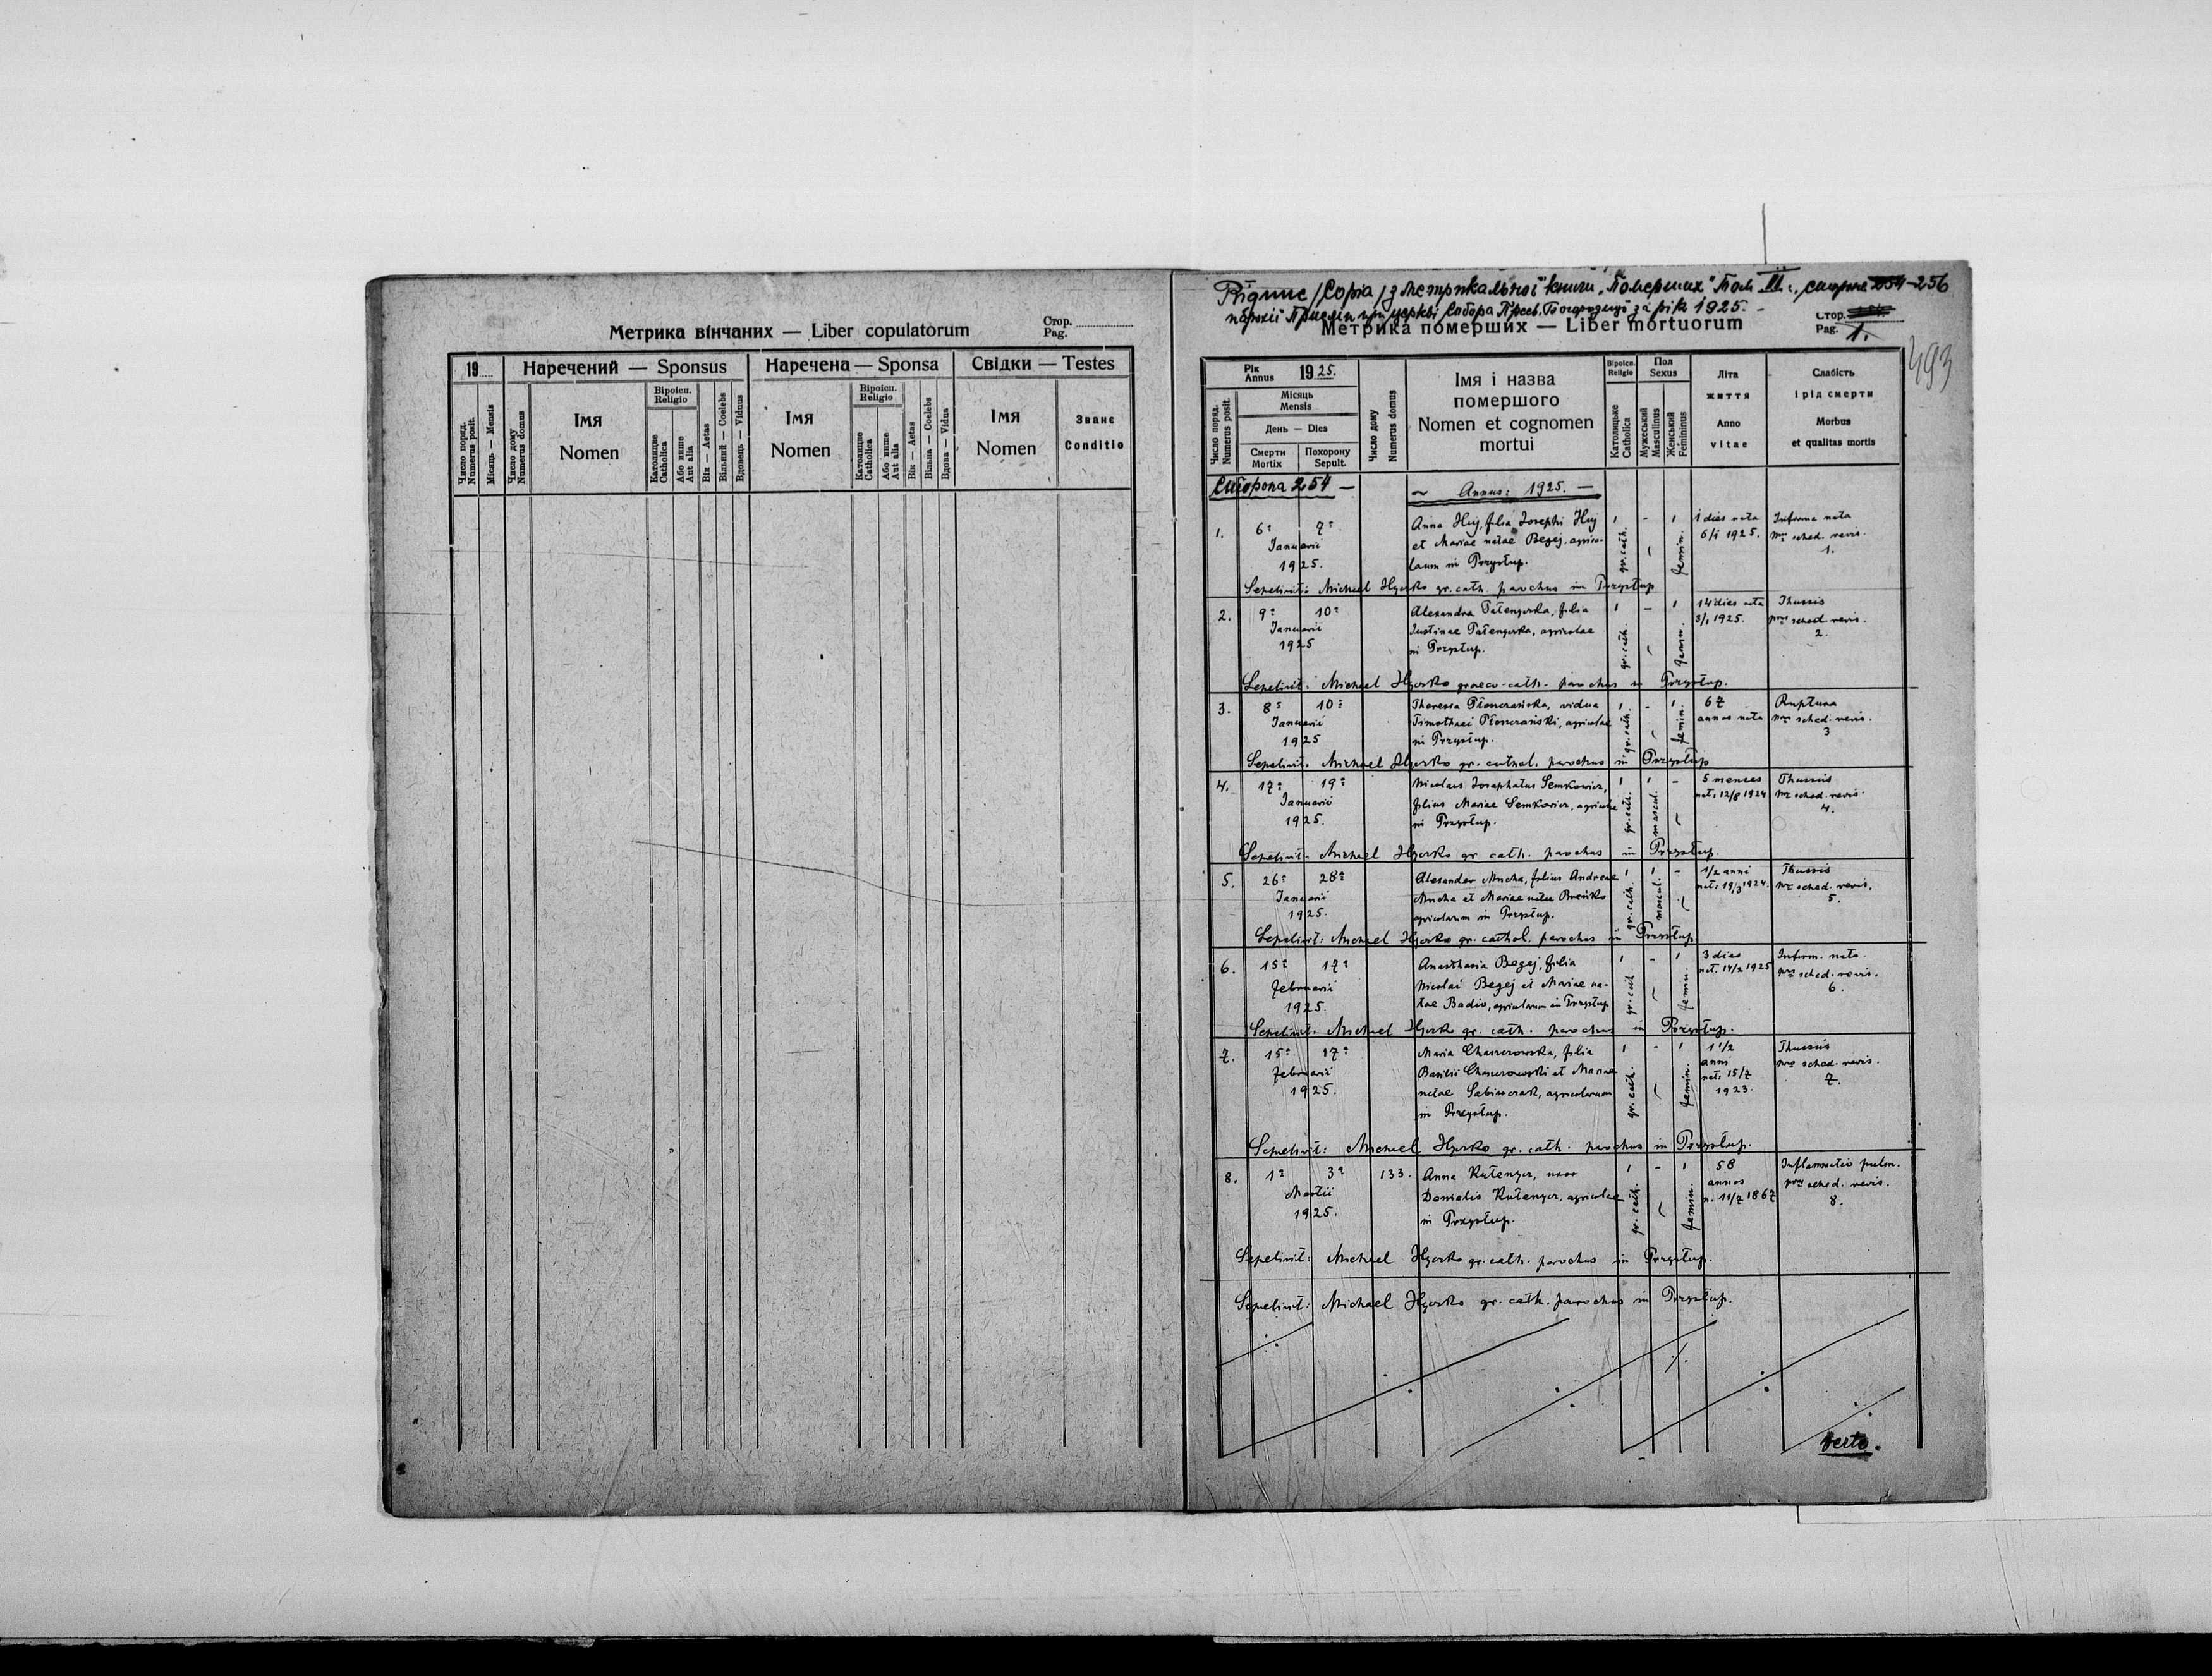 Метрика вінчаних — Liber copulatorum
Стор.
Pag.
19
Наречений — Sponsus
Наречена — Sponsa
Свідки — Testes
Число поряд.
Numerus posit.
Місяць — Mensis
Число дому
Numerus domus
Імя
Nomen
Віроісп.
Religio
Католицке
Catholica
Або инше
Aut alia
Вік — Aetas
Вільний — Coelebs
Вдовець — Viduus
Імя
Nomen
Віроісп.
Religio
Католицке
Catholica
Або инше
Aut alia
Вік — Aetas
Вільна — Coelebs
Вдова — Vidua
Імя
Nomen
Званє
Conditio
/Copia/ з метрикальної книги „Померших" Том II., сторона 254-256
при церкві Собора Пресв. Богородиці за рік 1925. -
Метрика померших — Liber mortuorum
Стор.
Pag. 1.
493
Рік
Annus 1925.
Число поряд.
Numerus posit.
Місяць
Mensis
День — Dies
Смерти
Mortix
Похорону
Sepult.
Число дому
Numerus domus
Імя і назва
помершого
Nomen et cognomen
mortui
Віроісп.
Religio
Католицьке
Catholica
Пол
Sexus
Мужеський
Masculinus
Женський
Femininus
Літа
життя
Anno
vitae
Слабість
і рід смерти
Morbus
et qualitas mortis
Сторона 254 —
~ Annus: 1925. —
1. 6 7 Anna Huj, filia Josephi Huj 1 - 1 1 dies nata Infirma nata
Ianuarii et Mariae natae Begej, agrico- gr. cath. femin. 6/1 1925. sched. revis.
1925. larum in Przysłup. 1.
Sepelivit: Michael Hyrko gr. cath. parochus in Przysłup
2. 9 10 Alexandra Tatenyrka, filia 1 - 1 14 dies nata Thussis
Ianuarii Justinae Tatenyrka, agricolae gr. cath. femin. 3/1 1925. sched. revis.
1925 in Przysłup. 2.
Sepelivit: Michael Hyrko graeco-cath. parochus in Przysłup.
3. 8 10 Theressa Płonczańska, vidua 1 - 1 67 Ruptura
Ianuarii Timothaei Płonczański, agricolae gr. cath. femin. annos nata sched. revis.
1925 in Przysłup. 3
Sepelivit. Michael Hyrko gr. cathol. parochus in Przysłup
4. 17 19 Nicolaus Josaphatus Semkowicz, 1 1 - 5 menses Thussis
Ianuarii filius Mariae Semkowicz, agricolae gr. cath. mascul. nat: 12/8 1924 sched. revis.
1925. in Przysłup. 4.
Sepelivit: Michael Hyrko gr cath. parochus in Przysłup.
5. 26 28 Alexander Mucha, filius Andreae 1 1 - 1/2 anni Thussis
Ianuarii Mucha et Mariae natae Breńko gr. cath. mascul. nat: 19/3 1924. sched. revis.
1925. agricolarum in Przysłup. 5.
Sepelivit: Michael Hyrko gr. cathol. parochus in Przysłup
6. 15 17 Anasthasia Begej, filia 1 - 1 3 dies Infirm. nata.
Februarii Nicolai Begej et Mariae na- gr. cath femin. nat. 14/2 1925 sched. revis.
1925. tae Badio, agricolarum in Przysłup 6.
Sepelivit: Michael Hyrko gr. cath. parochus in Przysłup.
7. 15 17 Maria Chaszczowska, filia 1 - 1 1 1/2 Thussis
Februarii Basilii Chaszczowski et Mariae gr. cath. femin. anni sched. revis.
1925. natae Sabinczak, agricolarum nat: 15/7 7.
in Przysłup. 1923.
Sepelivit: Michael Hyrko gr. cath. parochus in Przysłup.
8. 1 3 133. Anna Kutenyr, uxor 1 - 1 58 Inflammatio pulm.
Martii Danielis Kutenyr, agricolae gr. cath. femin. annos sched. revis.
1925. in Przysłup. n. 11/7 1867 8.
Sepelivit: Michael Hyrko gr. cath. parochus in Przysłup.
Sepelivit: Michael Hyrko gr. cath. parochus in Przysłup.
verte.